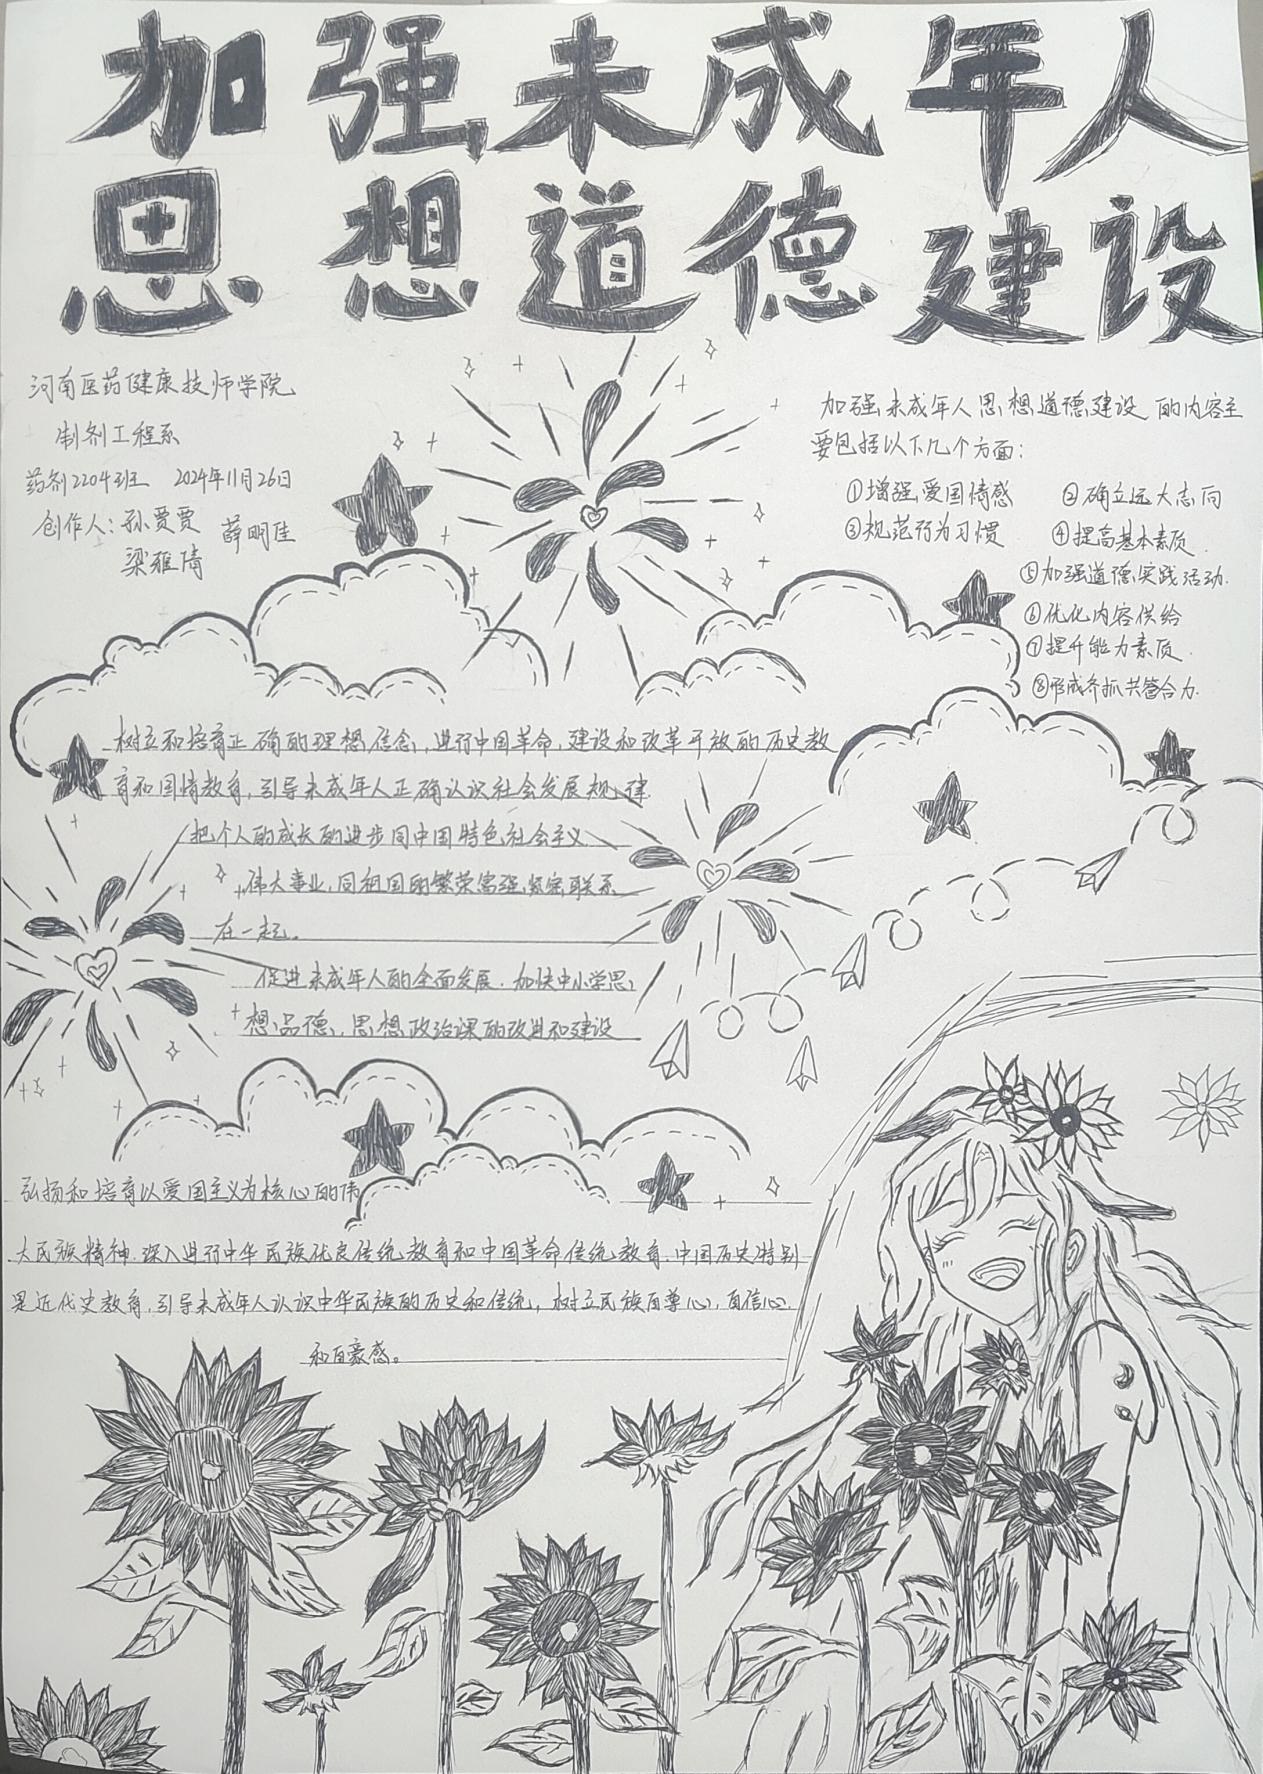 加强未成年人
思想道德建设
河南医药健康技师学院
制剂工程系
药剂2204班 2024年11月26日
创作人：孙贾贾 薛明佳
梁雅倩
加强未成年人思想道德建设的内容主
要包括以下几个方面：
①增强爱国情感 ②确立远大志向
③规范行为习惯 ④提高基本素质
⑤加强道德实践活动.
⑥优化内容供给
⑦提升能力素质.
⑧形成齐抓共管合力.
树立和培育正确的理想信念，进行中国革命，建设和改革开放的历史教
育和国情教育，引导未成年人正确认识社会发展规律.
把个人的成长的进步同中国特色社会主义
伟大事业，同祖国的繁荣富强紧密联系
在一起。
促进未成年人的全面发展.加快中小学思
想品德，思想政治课的改进和建设
弘扬和培育以爱国主义为核心的伟
大民族精神.深入进行中华民族优良传统教育和中国革命传统教育.中国历史特别
是近代史教育，引导未成年人认识中华民族的历史和传统，树立民族自尊心，自信心
和自豪感。